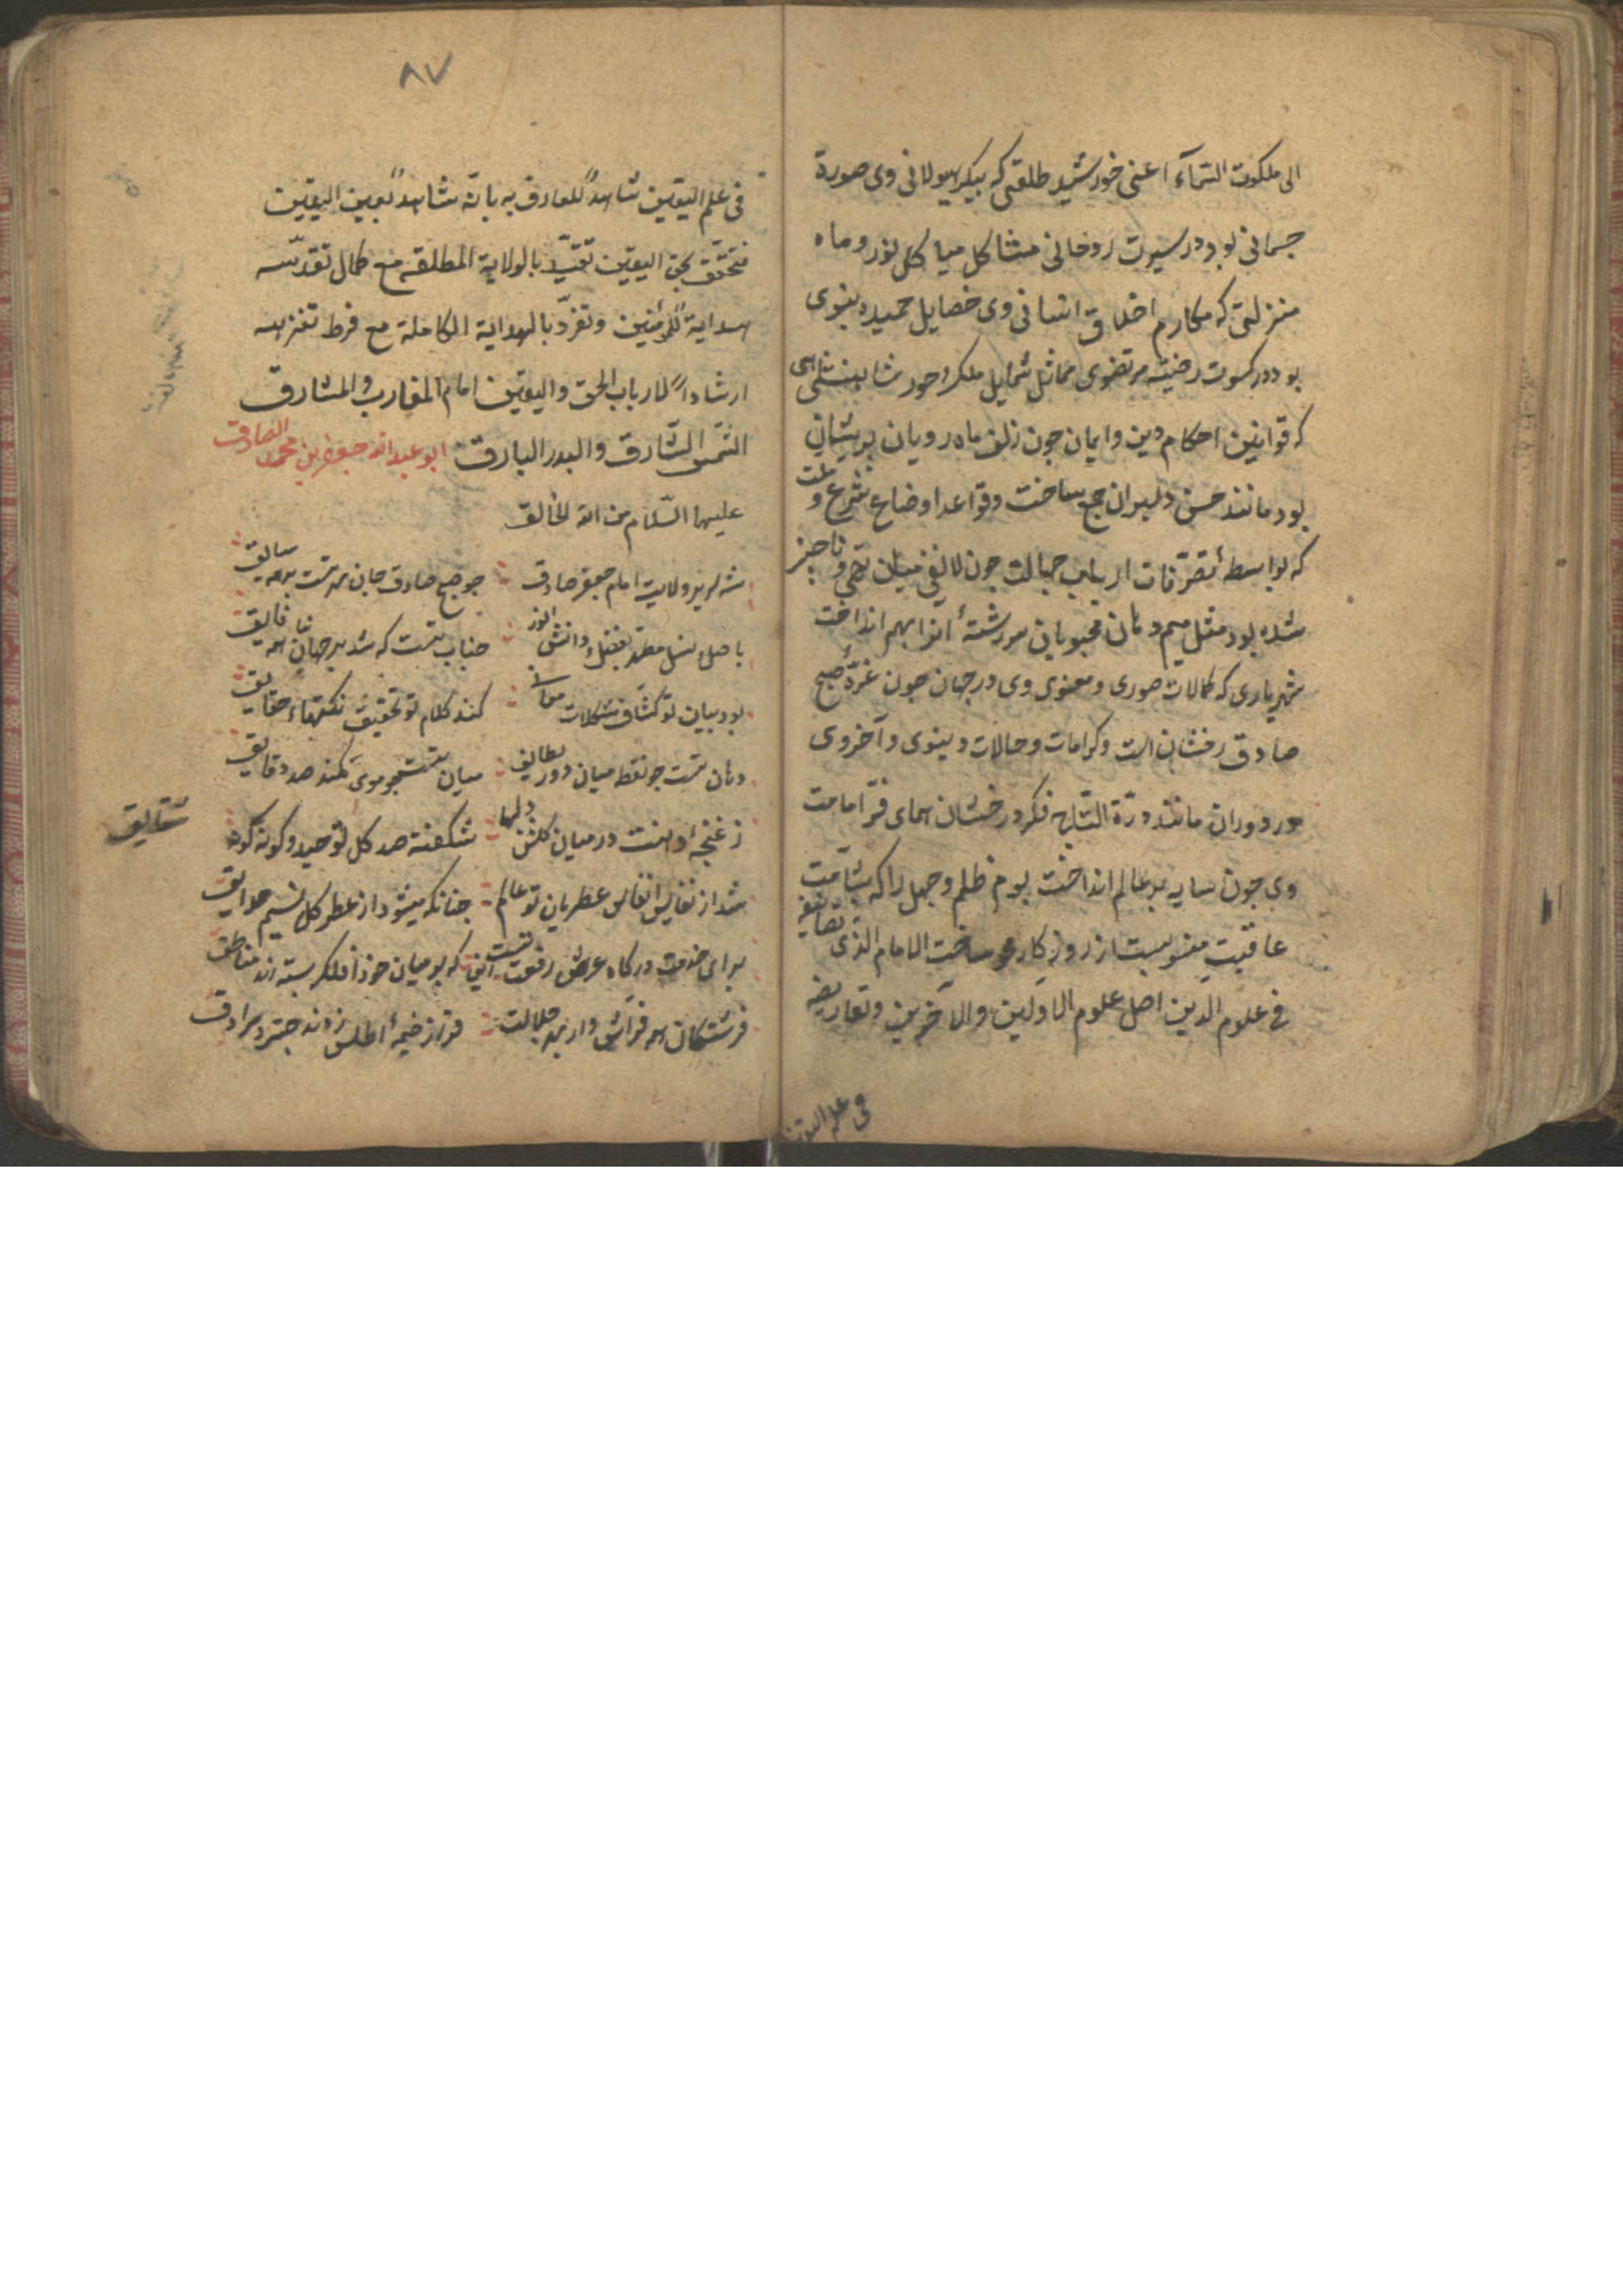 الی ملکوت السّمآء اعنی خورشید طلقتی که پیکر هیولانی وی صورة
جسمانی بود در سیرت روحانی مشاکل هیاکل نور و ماه
منزلتی که مکارم اخلاق انسانی وی خصایل حمیده نبوی
بود در کسوت رضیّه مرتضوی مماثل شمایل ملک و حور شاهنشاهی
که قوانین احکام دین و ایمان چون زلف ماه رویان پریشان
بود مانند حسن دلبران جمع ساخت و قواعد اوضاع شرع و ملت
که بواسطهٔ تصرّفات ارباب جهالت چون لا نفی میان تهی و ناچیز
شده بود مثل میم دهان محبوبان سر رشتهٔ آنرا بهم انداخت
شهریاری که کمالات صوری و معنوی وی در جهان چون غرّهٔ صبح
صادق رخشان است و کرامات و حالات دینوی و آخروی
در دوران مانند درّة التّاج فکر درخشان همای فرّ امامت
وی چون سایه بر عالم انداخت بوم ظلم و جهل را که بشآمت
عاقبت منسوبست از روزکار ساخت الامام الذی تصانیفه
فی علوم الدین اصل علوم الاوّلین والآخرین وتعاریفه
فی علم الیقین
٨٧
فی علم الیقین شاهدً للعارف به بانّه شاهدً بعین الیقین
متحقّق بحق الیقین تقیّد بالولایة المطلقه مع کمال تقدّسه
هدایةً للمؤمنین وتفرّد بالهدایة الکاملة مع فرط تنزیهه
ارشاداً لارباب الحق والیقین امام المغارب والمشارق
الشّمس الشّارق والبدر البارق ابو عبد الله جعفر بن محمد الصادق
علیهما السّلام من الله الخالق
شه سریر ولایت امام جعفر صادق چو صبح صادق جان بر همه سابق
باصل و نسل مطهر بفضل و دانش انور جناب تست که شد بر جهانیان همه فایق
بود بیان تو کشّاف مشکلات معانی کند کلام تو تحقیق نکتهاء حقایق
دهان تست چو نقطه میان دور لطایف میان تست چو موی کمند صد دقایق
ز غنچهٔ دهنت در میان کلشن دلها شکفته صد کل توحید و کونه کونه
شقایق
شد از نفایس انفاس عطر بان تو عالم چنانکه میشود از عطر کل نسیم حدایق
برای خدمت درکاه عرش رفعت تست این که بر میان خود افلاک بسته اند مناطق
فرشتکان همه فرّاش وار بهر جلالت فراز خیمهٔ اطلس زدند چتر و سرادق